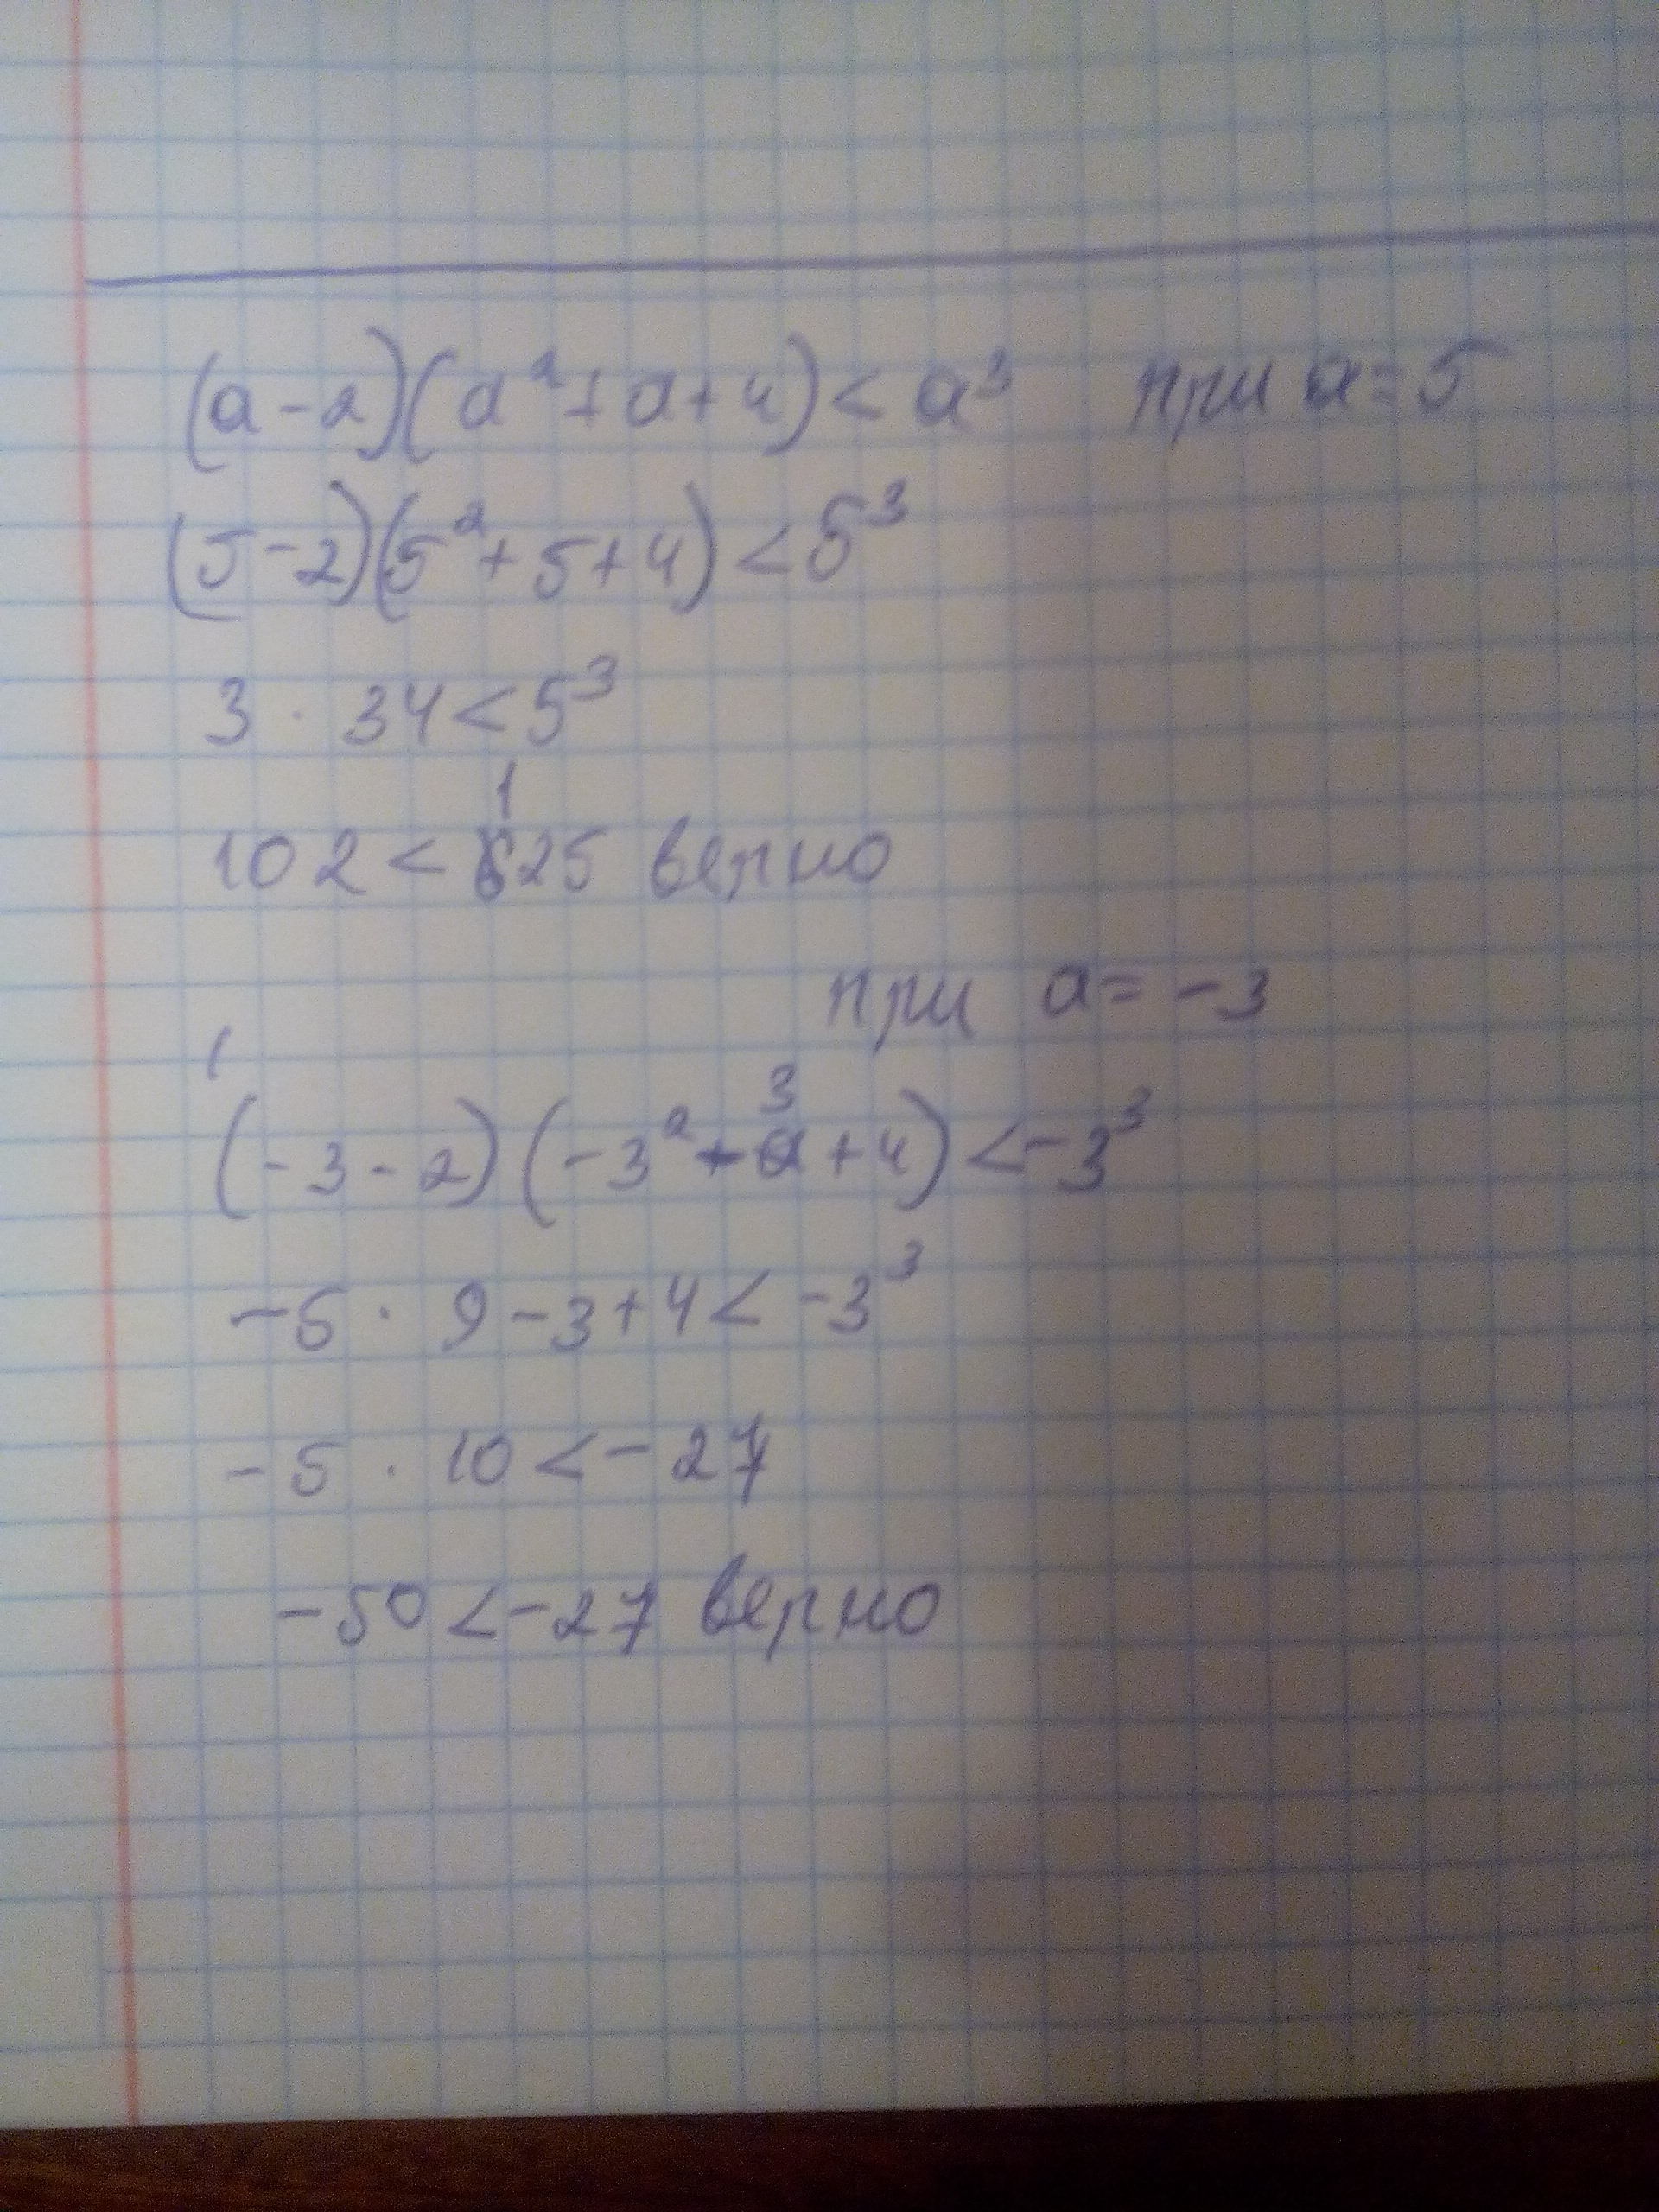 (a-2)(a²+a+4)<a³ при a=5
(5-2)(5²+5+4)<5³
3 · 34<5³
102<125 верно
при a=-3
(
(-3-2)(-3²-3+4)<-3³
-5 · 9-3+4<-3³
-5 · 10<-27
-50<-27 верно